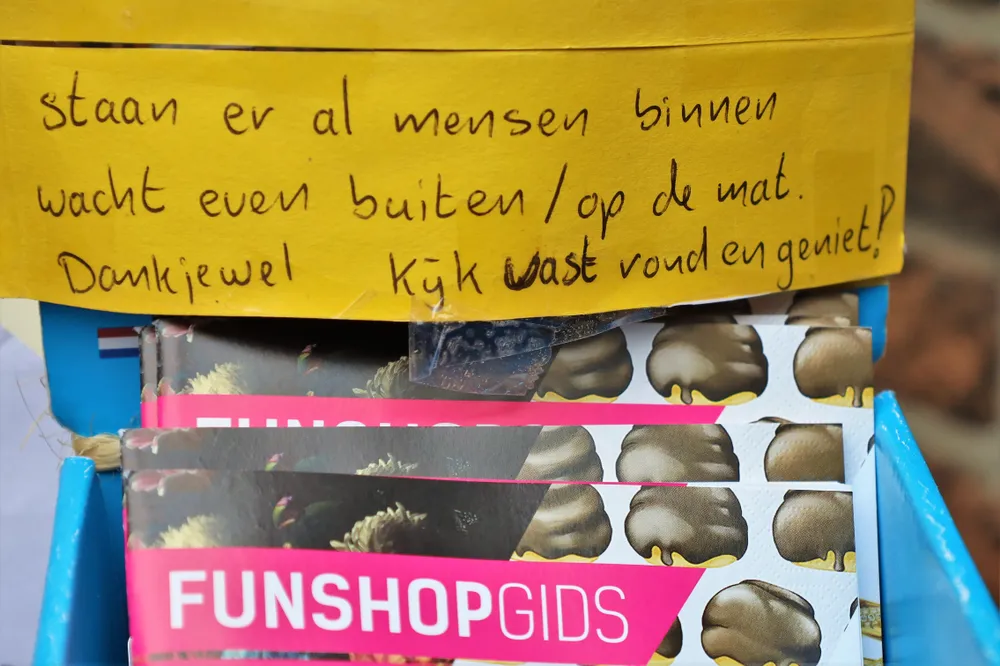 staan er al mensen binnen
wacht even buiten / op de mat.
Dankjewel Kijk vast rond en geniet!
FUNSHOPGIDS
FUNSHOPGIDS